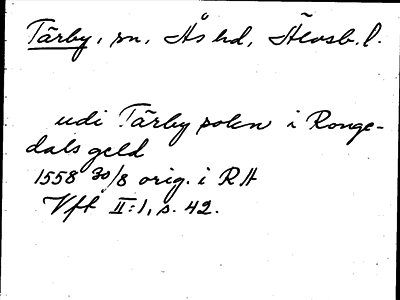 Tärby, sn, Ås hd, Älvsb. l.
udi Tärby solen i Ronge-
dals geld
1558 30/8 orig. i RA
Vft II:1, s. 42.